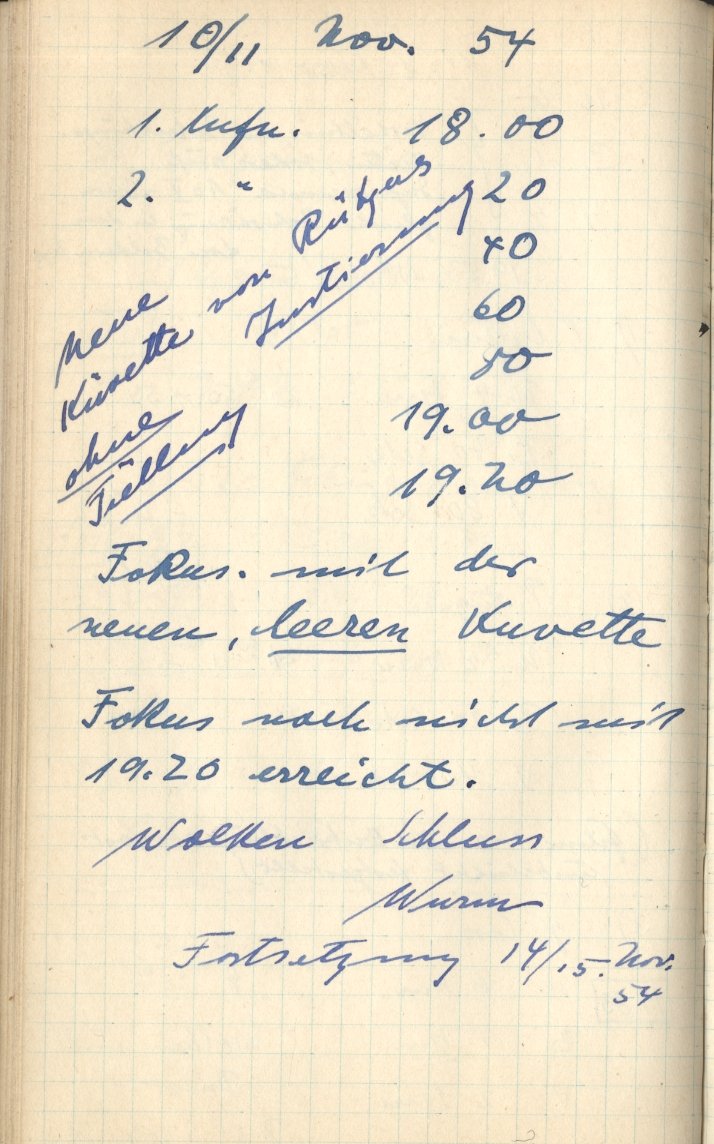 10/11 Nov. 54
1. Aufn. 18.00
2. " 20
40
60
80
19.00
19.20
neue
Küvette von
Justierung
ohne
Füllung
Fokus. mit der
neuen, leeren Kuvette
Fokus noch nicht mit
19.20 erreicht.
Wolken Schluss
Wurm
Fortsetzung 14/15. Nov.
54